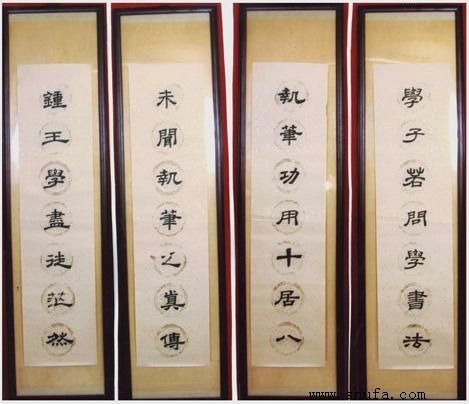 學子若問學書法
執筆功用十居八
未聞執筆之真傳
鍾王學盡徒茫然
www.shufa.com